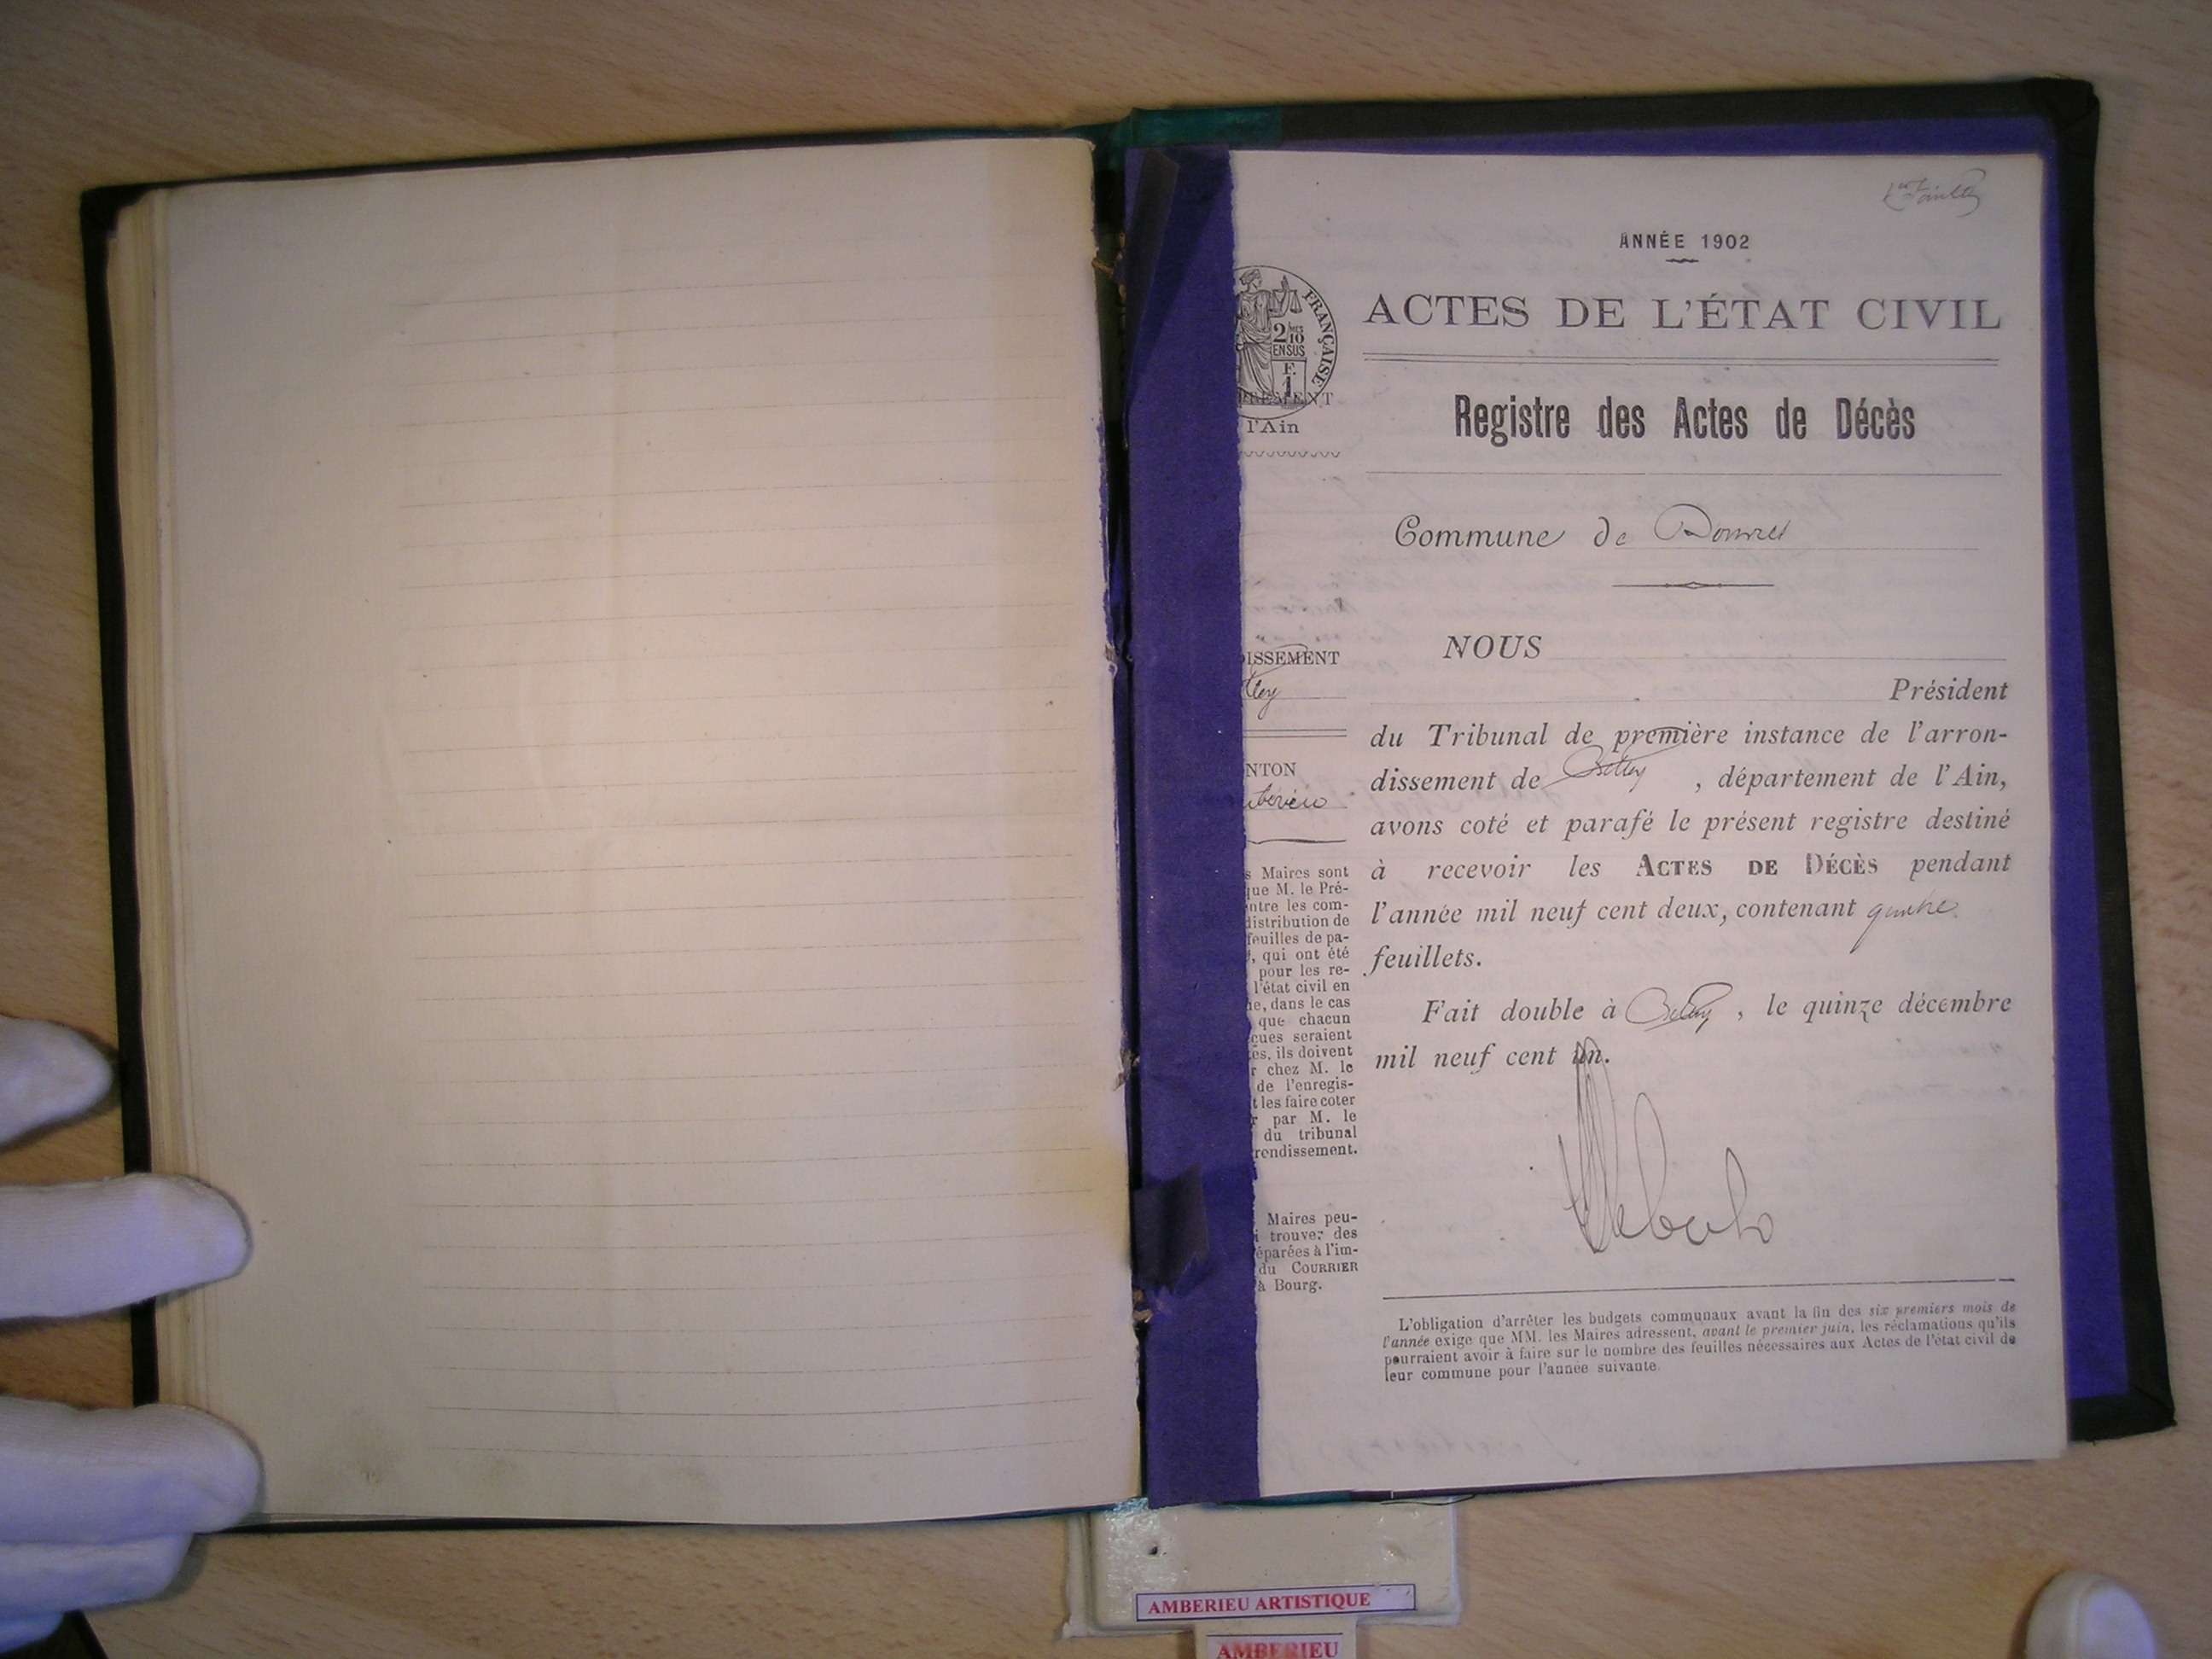 1er feuillet
ANNÉE 1902
FRANÇAISE
2/10
EN SUS
F.
1
l'Ain
ACTES DE L'ÉTAT CIVIL
Registre des Actes de Décès
Commune de Douvres
ISSEMENT
ley
NTON
bérieu
s Maires sont
que M. le Pré-
ntre les com-
distribution de
feuilles de pa-
, qui ont été
pour les re-
l'état civil en
e, dans le cas
que chacun
çues seraient
es, ils doivent
r chez M. le
de l'enregis-
t les faire coter
r par M. le
du tribunal
rondissement.
Maires peu-
i trouver des
éparées à l'im-
du COURRIER
à Bourg.
NOUS
Président
du Tribunal de première instance de l'arron-
dissement de Belley, département de l'Ain,
avons coté et parafé le présent registre destiné
à recevoir les ACTES DE DÉCÈS pendant
l'année mil neuf cent deux, contenant
feuillets.
Fait double à Belley, le quinze décembre
mil neuf cent un.
L'obligation d'arrêter les budgets communaux avant la fin des six premiers mois de
l'année exige que MM. les Maires adressent, avant le premier juin, les réclamations qu'ils
pourraient avoir à faire sur le nombre des feuilles nécessaires aux Actes de l'état civil de
leur commune pour l'année suivante.
AMBERIEU ARTISTIQUE
AMBERIEU